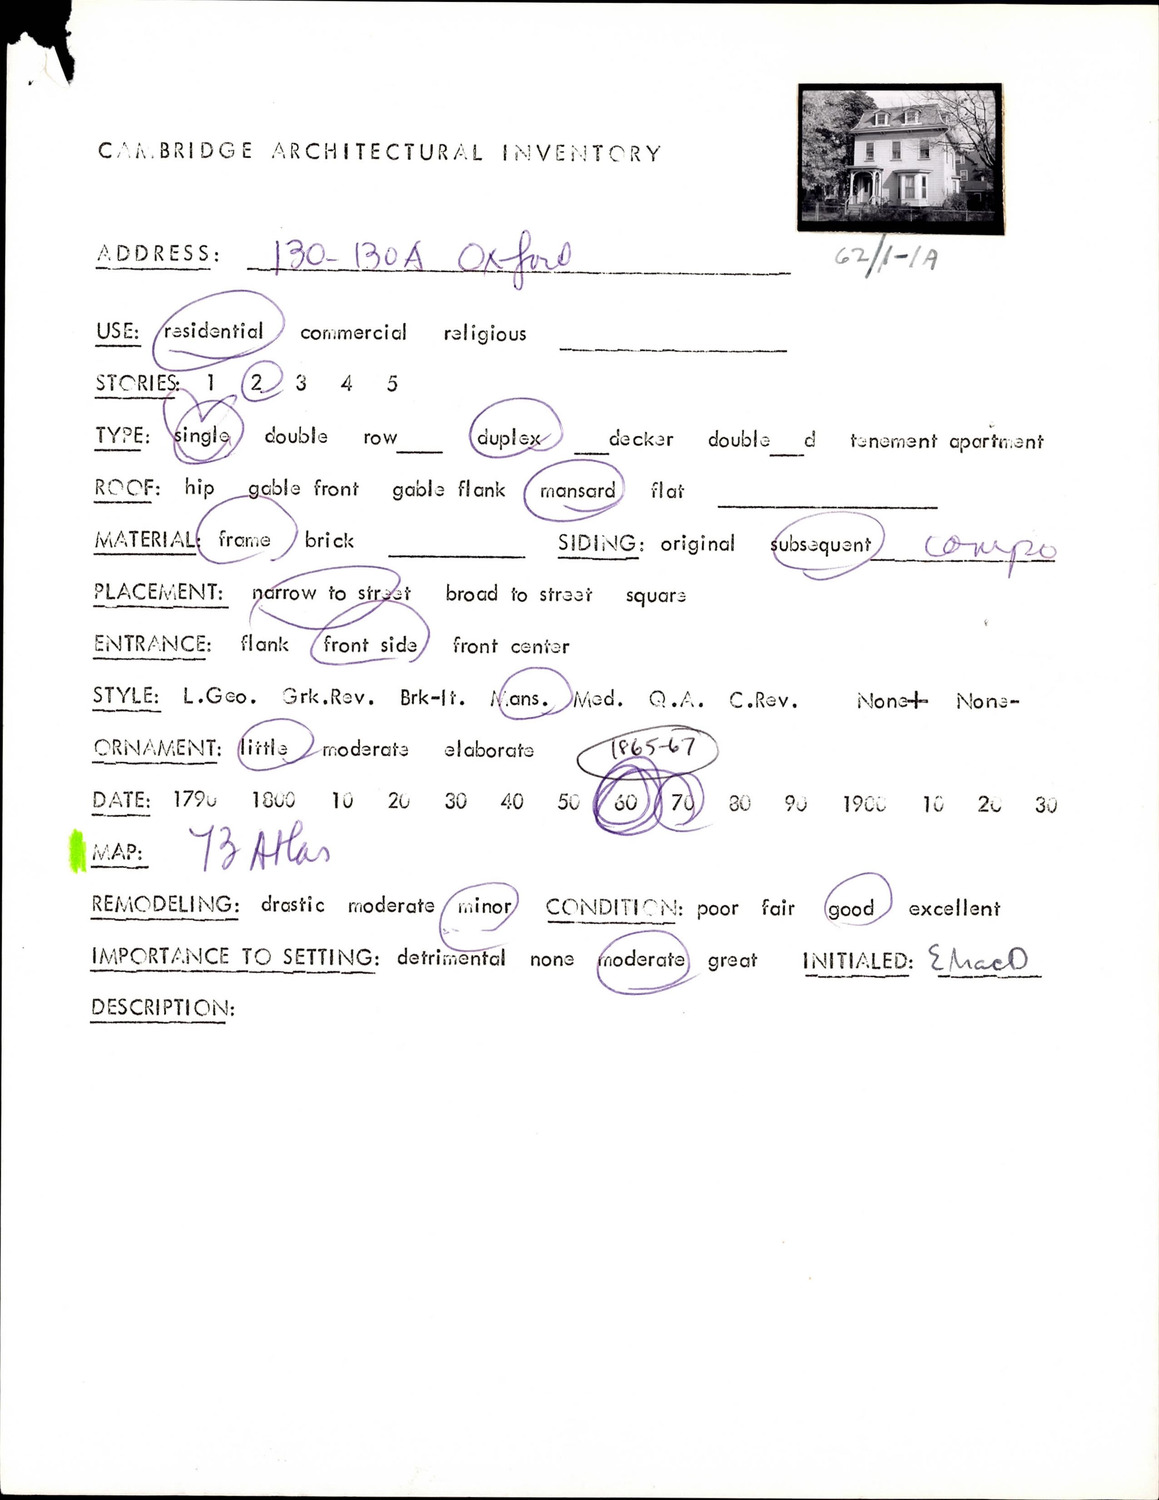 CAMBRIDGE ARCHITECTURAL INVENTORY
ADDRESS: 130-130A Oxford
62/1-1A
USE: residential commercial religious
STORIES: 1 2 3 4 5
TYPE: single double row___ duplex ___decker double___d tenement apartment
ROOF: hip gable front gable flank mansard flat
MATERIAL: frame brick ___ SIDING: original subsequent compo
PLACEMENT: narrow to street broad to street square
ENTRANCE: flank front side front center
STYLE: L.Geo. Grk.Rev. Brk-It. Mans. Med. Q.A. C.Rev. None+ None-
ORNAMENT: little moderate elaborate 1865-67
DATE: 1790 1800 10 20 30 40 50 60 70 80 90 1900 10 20 30
MAP: 73 Atlas
REMODELING: drastic moderate minor CONDITION: poor fair good excellent
IMPORTANCE TO SETTING: detrimental none moderate great INITIALED: EMacD
DESCRIPTION: